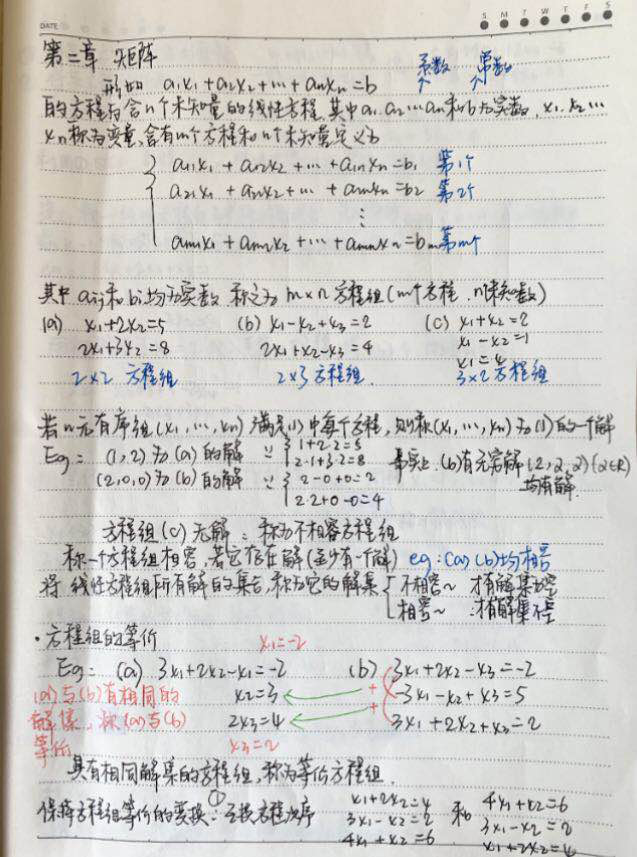 DATE
S M T W T F S
第二章 矩阵
系数 常数
形如 a₁x₁ + a₂x₂ + … + aₙxₙ = b
的方程为含n个未知量的线性方程, 其中a₁, a₂…aₙ和b为实数, x₁, x₂…
xₙ称为变量, 含有m个方程和n个未知量定义为
a₁₁x₁ + a₁₂x₂ + … + a₁ₙxₙ = b₁ 第1个
a₂₁x₁ + a₂₂x₂ + … + a₂ₙxₙ = b₂ 第2个
⋮
aₘ₁x₁ + aₘ₂x₂ + … + aₘₙxₙ = bₘ 第m个
其中 aᵢⱼ和bᵢ均为实数 称之为 m×n 方程组 (m个方程, n个未知数)
(a) x₁+2x₂=5 (b) x₁-x₂+x₃=2 (c) x₁+x₂=2
2x₁+3x₂=8 2x₁+x₂-x₃=4 x₁-x₂=1
x₁=4
2×2 方程组 2×3 方程组. 3×2 方程组
若n元有序组(x₁, …, xₙ) 满足(1)中每个方程, 则称(x₁, …, xₙ)为(1)的一个解
Eg: (1,2)为(a)的解 ∵ { 1+2·2=5
2·1+3·2=8
事实上, (b)有无穷解(2,α,α)(α∈R)
均有解.
(2,0,0)为(b)的解 ∵ { 2-0+0=2
2·2+0-0=4
方程组(c)无解: 称为不相容方程组
称一个方程组相容, 若它存在解(至少有一个解) eg: (a),(b)均相容
将 线性方程组所有解的集合, 称为它的解集 { 不相容~ 才有解集为空
相容~ : 才有解集不空
· 方程组的等价
x₁=-2
Eg: (a) 3x₁+2x₂-x₁=-2 (b) 3x₁+2x₂-x₃=-2
x₂=3 + -3x₁-x₂+x₃=5
2x₃=4 + 3x₁+2x₂+x₃=2
x₃=2
(a)与(b)有相同的
解集, 称(a)与(b)
等价
具有相同解集的方程组, 称为等价方程组.
保持方程组等价的变换: ①互换方程次序
x₁+2x₂=4 和 4x₁+x₂=6
3x₁-x₂=2 3x₁-x₂=2
4x₁+x₂=6 x₁+2x₂=4